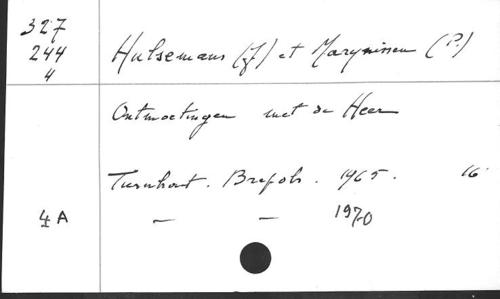 327
244
4
Hulsemans (J) et Marynissen (P.)
Ontmoetingen met de Heer
Turnhout. Brepols. 1965. 16
4A — — 1970